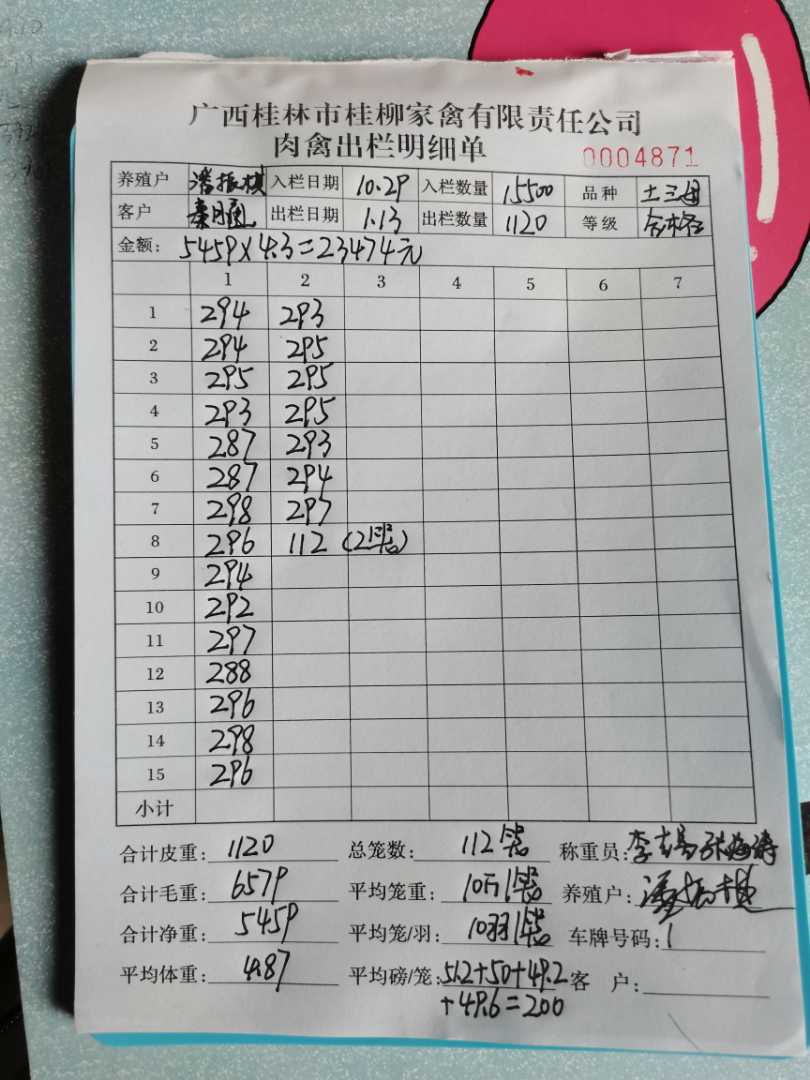 广西桂林市桂柳家禽有限责任公司
肉禽出栏明细单 0004871
养殖户 潘振棋 入栏日期 10.29 入栏数量 15500 品种 土三母
客户 秦 出栏日期 1.13 出栏数量 1120 等级 合格
金额: 5459×4.3=23474元
1 2 3 4 5 6 7
1 294 293
2 294 295
3 295 295
4 293 295
5 287 293
6 287 294
7 298 297
8 296 112 (2笼)
9 294
10 292
11 297
12 288
13 296
14 298
15 296
小计
合计皮重: 1120 总笼数: 112笼 称重员: 李
合计毛重: 6579 平均笼重: 10斤/笼 养殖户: 潘振棋
合计净重: 5459 平均笼/羽: 10羽/笼 车牌号码:
平均体重: 4.87 平均磅/笼: 51.2+50+49.2 客 户:
+49.6=200